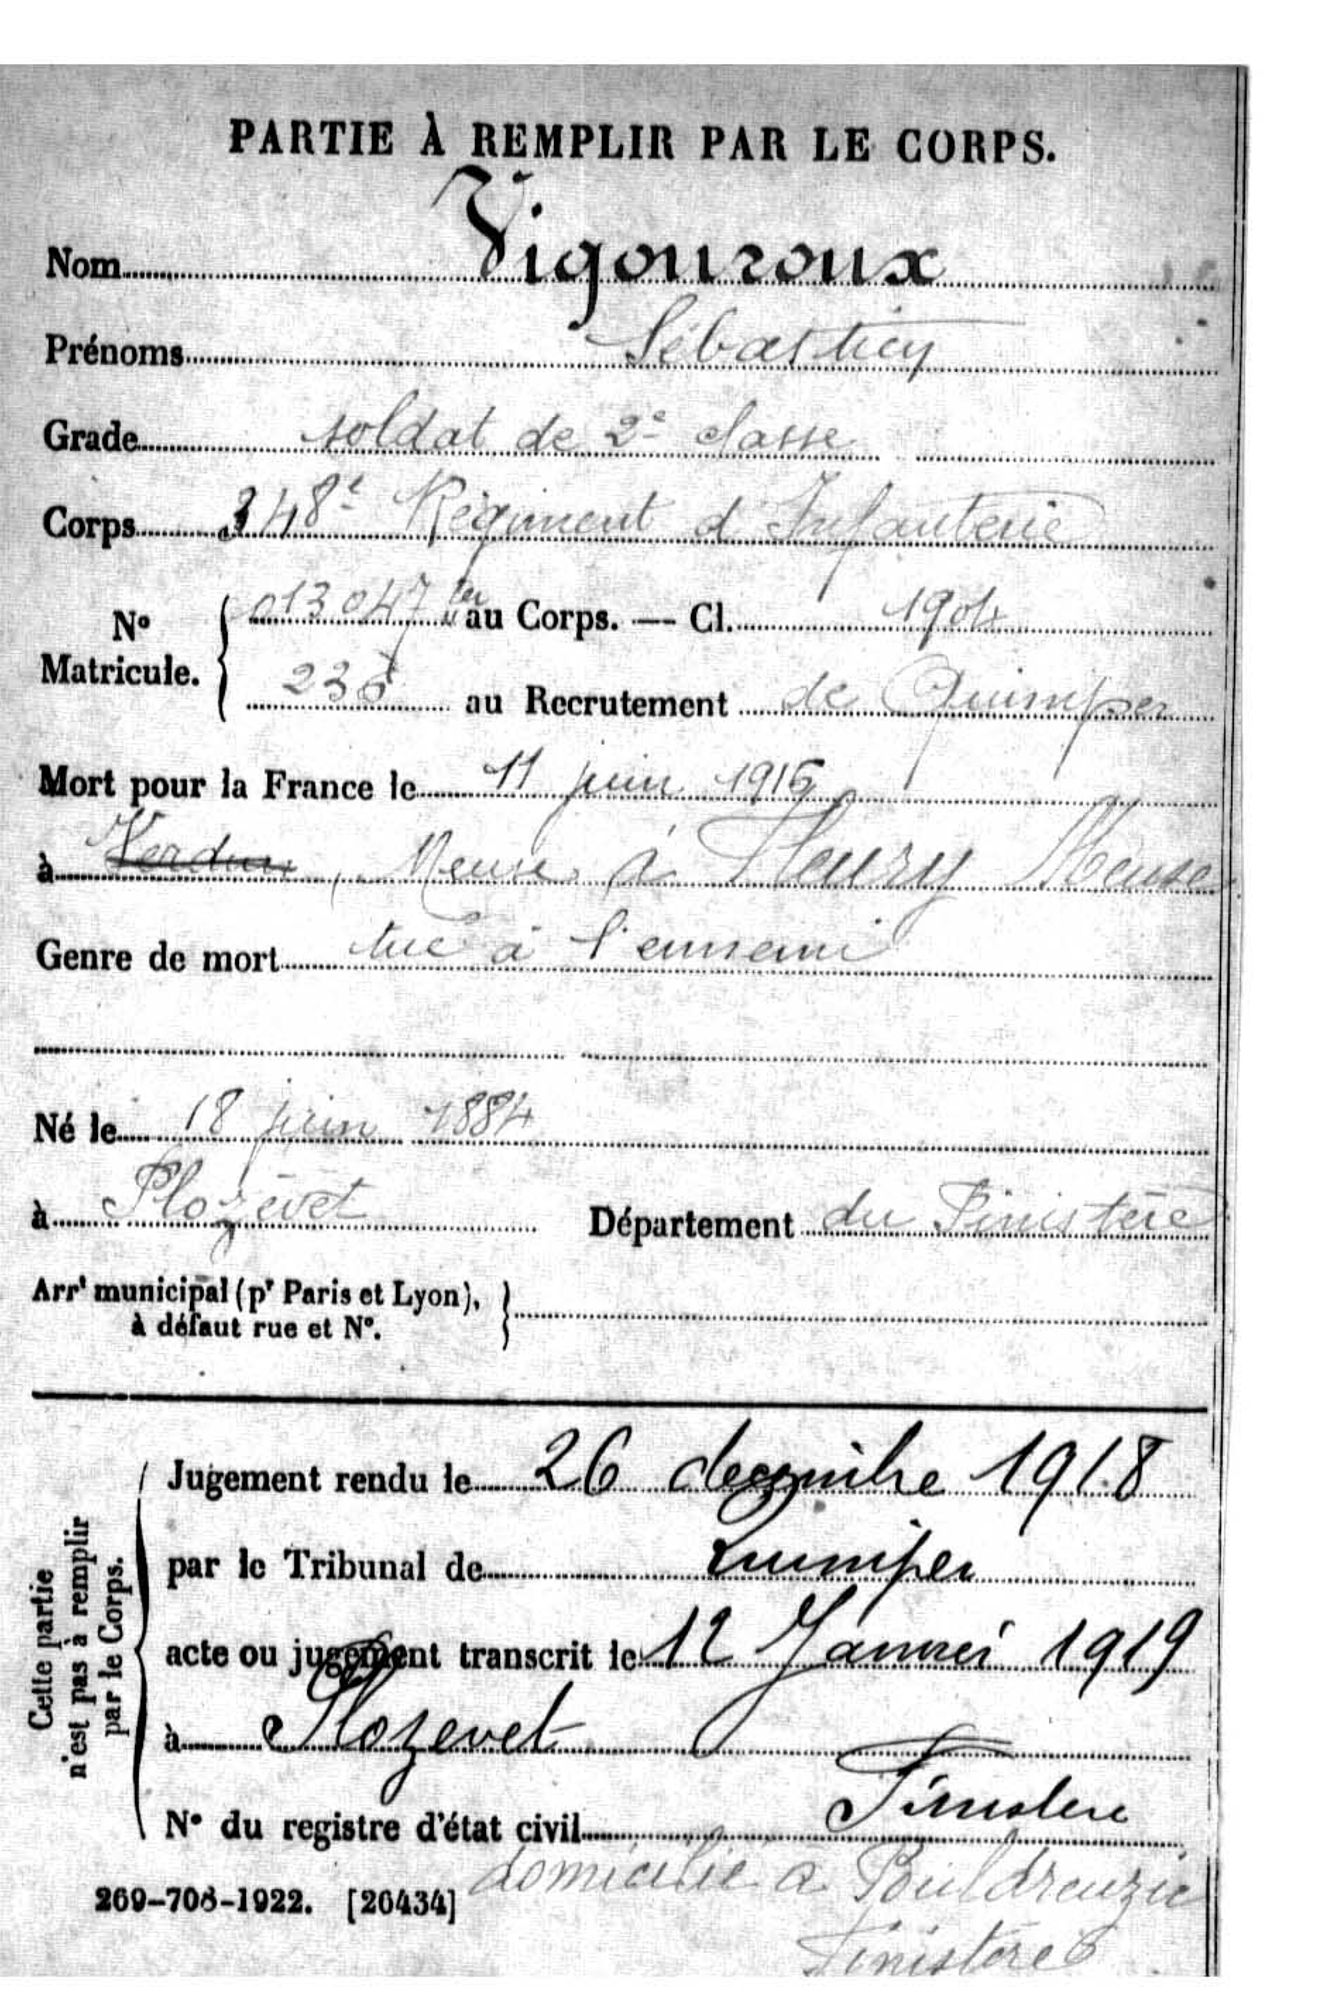 PARTIE À REMPLIR PAR LE CORPS.
Nom Vigouroux
Prénoms Sébastien
Grade soldat de 2e classe
Corps 348e Régiment d'Infanterie
No Matricule. { 013047 au Corps. — Cl. 1904
au Recrutement de Quimper
Mort pour la France le 11 juin 1916
à Verdun, Meuse à Fleury Meuse
Genre de mort tué à l'ennemi
Né le 18 juin 1884
à Plozévet Département du Finistère
Arrt municipal (pr Paris et Lyon), }
à défaut rue et No.
Cette partie
n'est pas à remplir
par le Corps.
Jugement rendu le 26 decembre 1918
par le Tribunal de Quimper
acte ou jugement transcrit le 12 Janvier 1919
à Plozevet
Finistere
No du registre d'état civil
domicilié à Pouldreuzic
Finistère
269-708-1922. [26434]